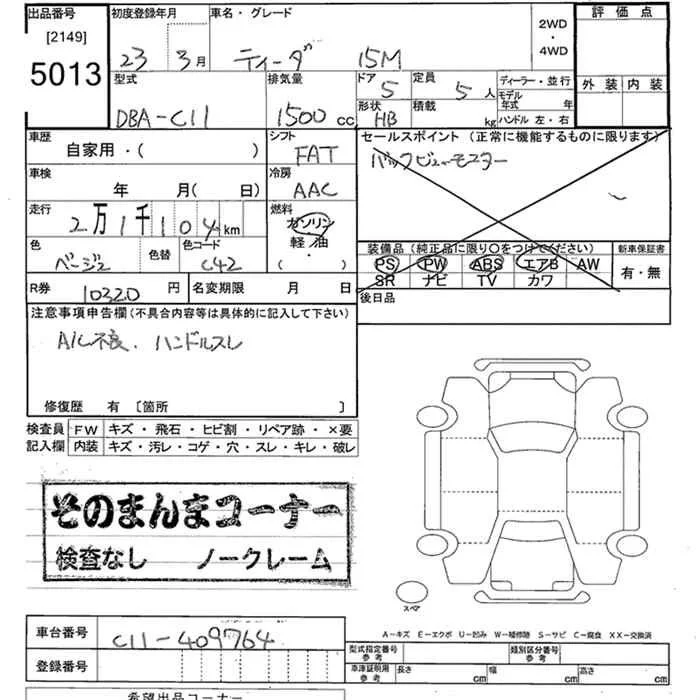 出品番号 初度登録年月 車名・グレード 評価点
[2149] 2WD
5013 23 3月 ティーダ 15M ・
4WD
型式 排気量 ドア 定員 ディーラー・並行 外装 内装
5 5人 モデル年式 年
DBA-C11 1500cc 形状 積載 ハンドル 左・右
HB kg
車歴 シフト セールスポイント (正常に機能するものに限ります)
自家用・( ) FAT バックビューモニター
車検 冷房
年 月( 日) AAC
走行 燃料
2万1千104km ガソリン
色 色替 色コード 軽油 装備品(純正品に限り○をつけてください) 新車保証書
ベージュ C42 ( ) PS PW ABS エアB AW 有・無
SR ナビ TV カワ
R券 10320円 名変期限 月 日 後日品
注意事項申告欄(不具合内容等は具体的に記入して下さい)
A/C不良. ハンドルスレ
修復歴 有 〔箇所 〕
検査員 FW キズ・飛石・ヒビ割・リペア跡・×要
記入欄 内装 キズ・汚レ・コゲ・穴・スレ・キレ・破レ
そのまんまコーナー
検査なし ノークレーム
スペア
A-キズ E-エクボ U-凹み W-補修跡 S-サビ C-腐食 XX-交換済
車台番号 C11-409764
型式指定番号 参考 類別区分番号 参考
登録番号 車庫証明用 参考 長さ cm 幅 cm 高さ cm
希望出品コーナー